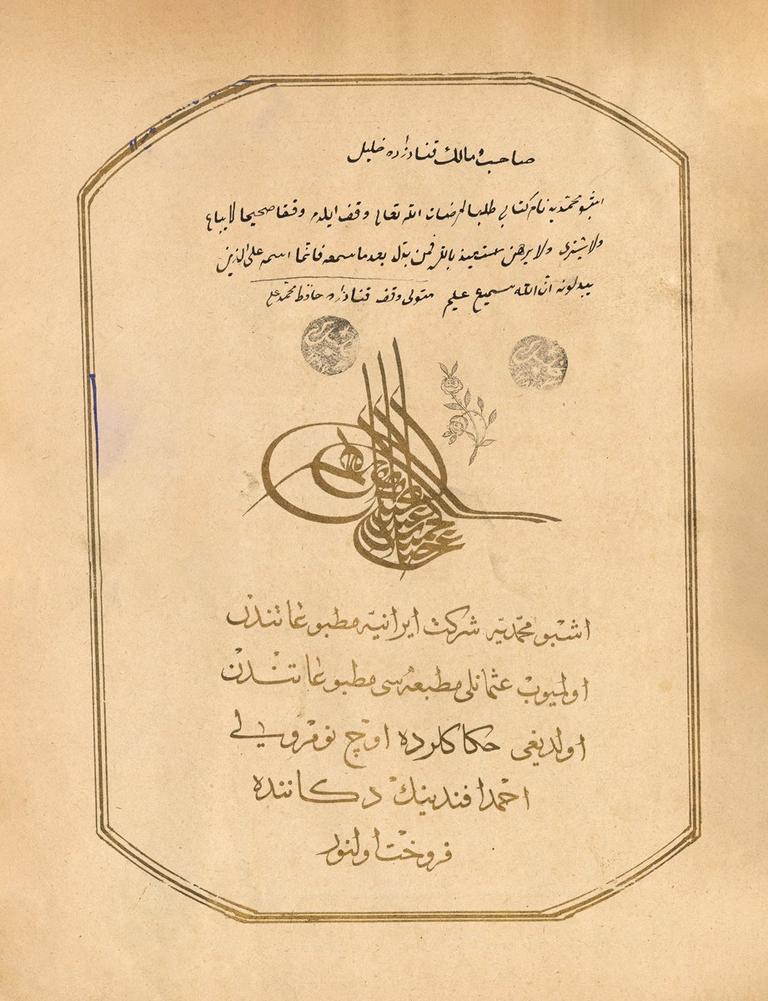 صاحب و مالك قنادزاده خليل
اشبو محمديه نام كتابى طلبا لمرضات الله تعالى وقف ايلدم وقفا صحيحا لا يباع
ولا يشترى ولا يرهن بالله فمن بدله بعد ما سمعه فانما اثمه على الذين
يبدلونه ان الله سميع عليم متولى وقف قنادزاده حافظ محمد على
اشبو محمّديّه شركت ايرانيّه مطبوعاتندن
اولميوب عثمانلى مطبعه‌سى مطبوعاتندن
اولديغى حكاكلرده اوچ نومرولى
احمد افندينك دكاننده
فروخت اولنور